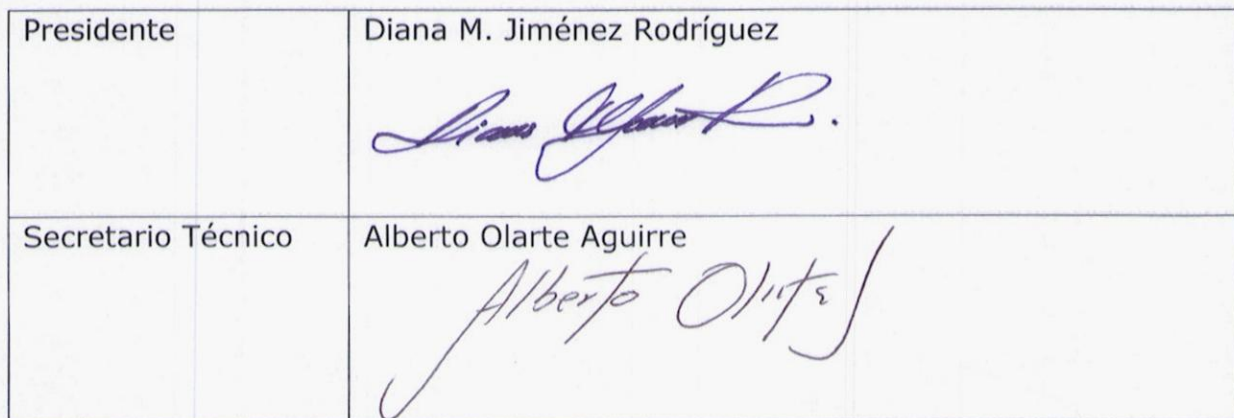 Presidente
Diana M. Jiménez Rodríguez
Secretario Técnico
Alberto Olarte Aguirre
Alberto Olarte